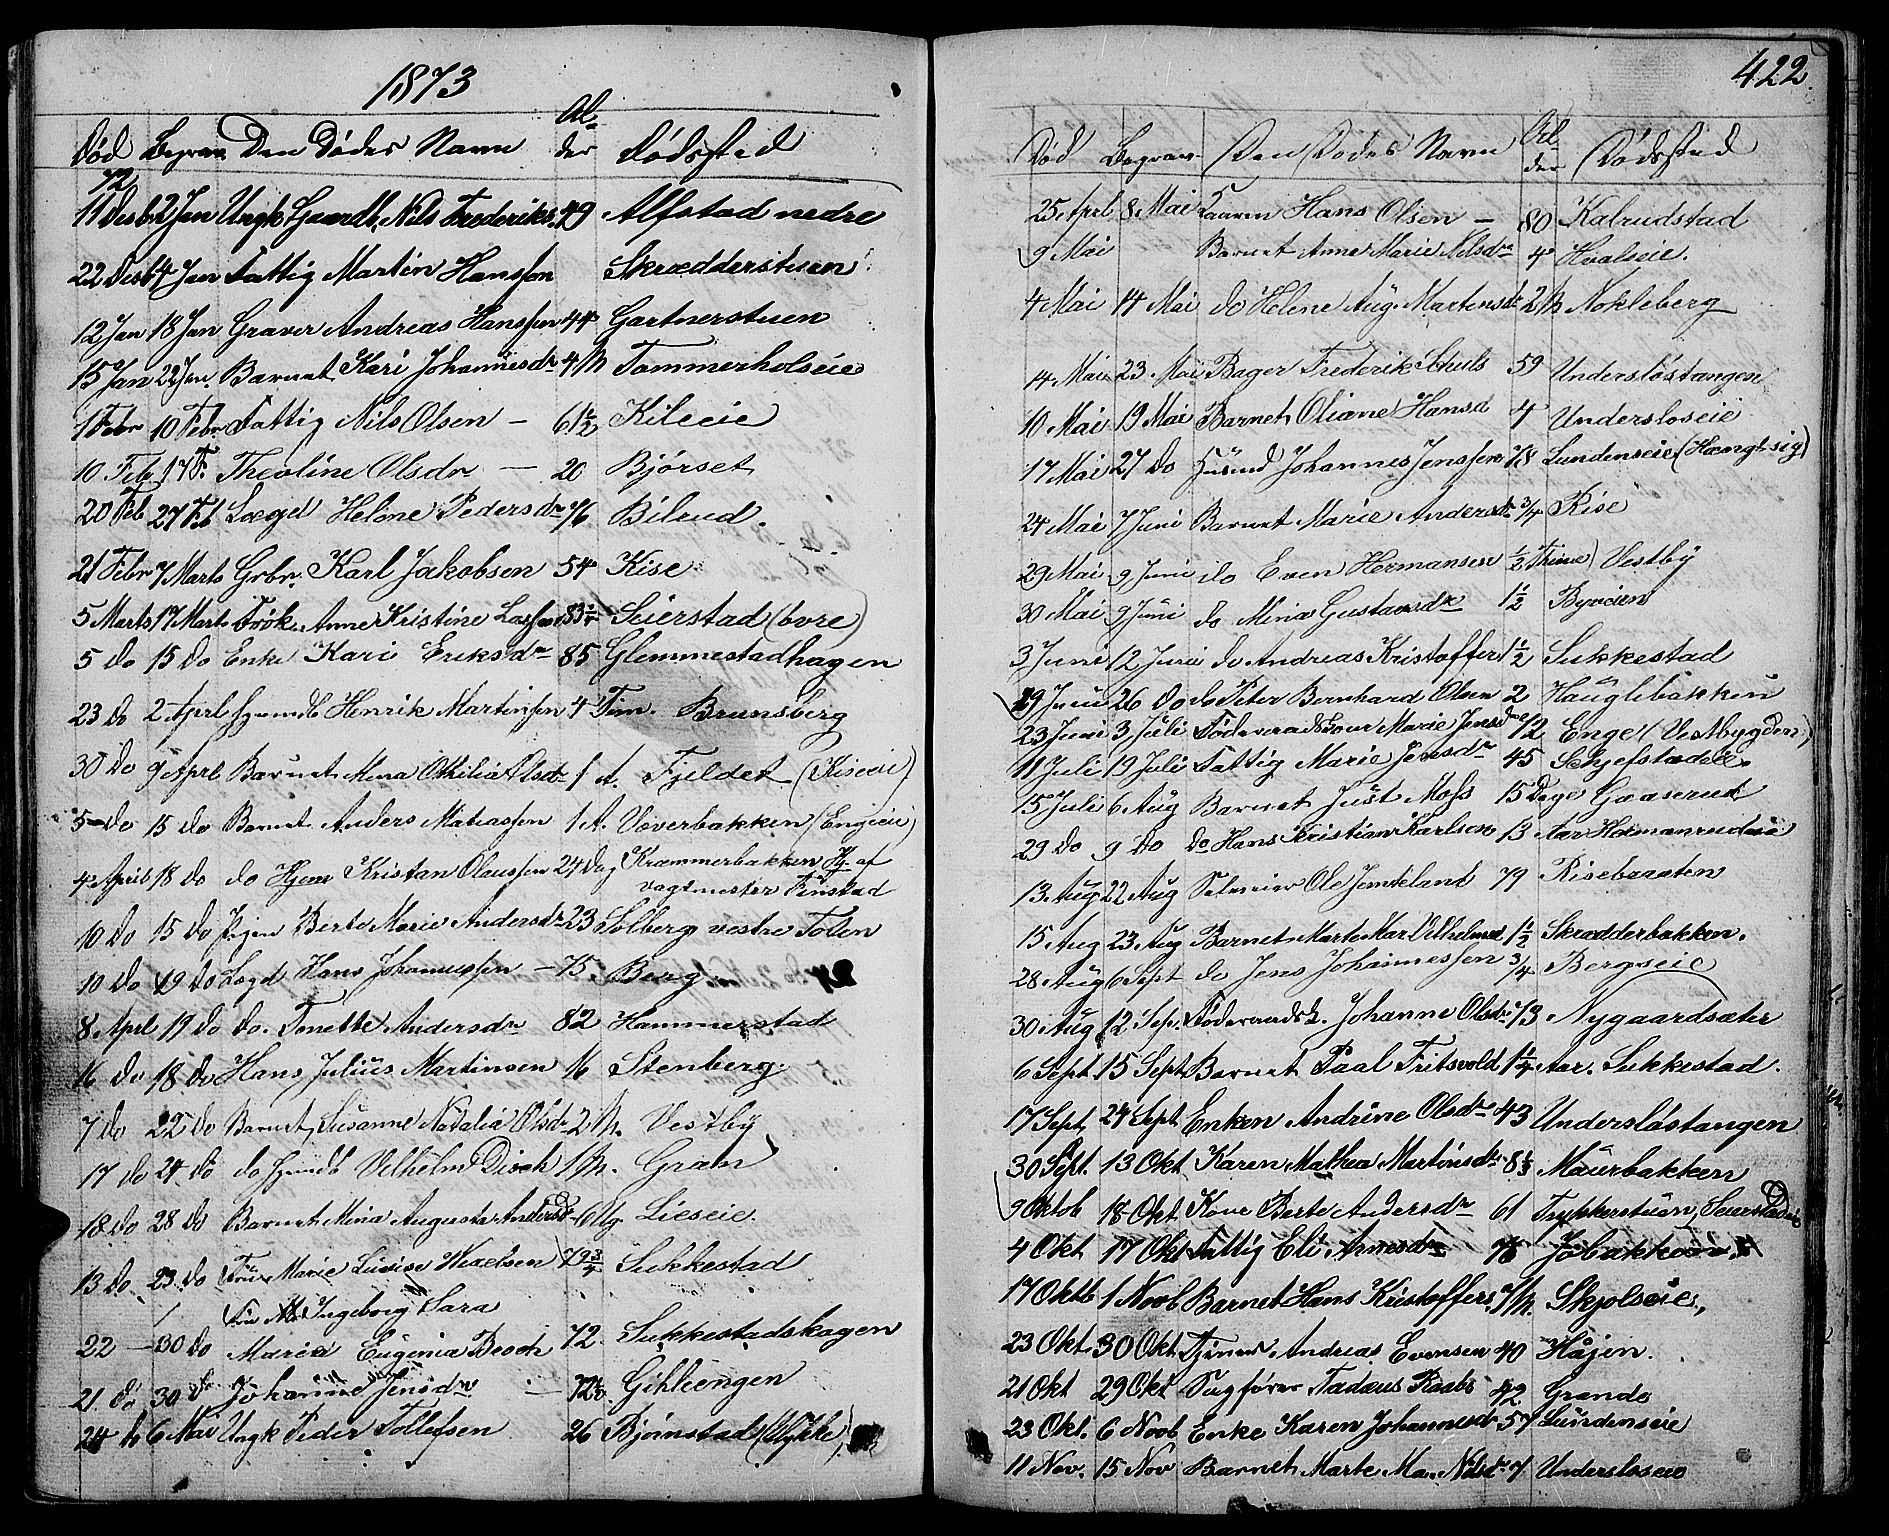 1873
Død Begrav Den Dødes Navn Al-der Dødssted
72
11 Desb 2 Jan Ungk Gaardb. Nils Frederiks. 49 Alfstad nedre
22 Desb 4 Jan Fattig Martin Hanssen Skrædderstuen
12 Jan 18 Jan Graver Andreas Hanssen 44 Gartnerstuen
15 Jan 22 Jan. Barnet Kari Johannesdr 4 M Tømmerholseie
1 Febr 10 Febr Fattig Nils Olsen — 61½ Kileeie
10 Feb 17 F. Theoline Olsdr — 20 Bjørset
20 Feb 27 Feb Lægd Helene Pedersdr 76 Bilrud.
21 Febr 7 Marts Grbr. Karl Jakobsen 54 Kise
5 Marts 17 Marts Frøk. Anne Kristine Lassen 83 Seierstad (øvre)
5 do 15 do Enke Kari Eriksdr 85 Glemmestadhagen
23 Do 2 Aprl Gaardb Henrik Martinsen 4 Tim. Brunsberg
30 Do 9 Aprl Barnet Mina Othilia Olsdr 1 A. Fjeldet (Kiseeie)
5 Do 15 do Barnet Anders Matiassen 1 A. Væverbakken (Engeie)
4 April 18 do do Hjem Kristan Olaussen 24 Dag Krammerbakken Hj. af
vagtmester Finstad
10 Do 15 Do Pigen Berte Marie Andersdr 23 Solberg vestre Toten
10 Do 19 Do Lægd Hans Johannessen — 75 Berg
8 Aprl 19 do do. Tonette Andersdr 82 Hammerstad
16 do 18 do Hans Julius Martinsen 16 Stenberg.
7 do 22 do Barnet Susanne Natalia Olsdr 2 M. Vestby
17 do 24 do do Gaardb Vilhelm Disch 1 M. Gran
18 do 28 do Barnet Mina Augusta Andersdr 6 Ug. Lieseie.
13 do 23 do Fru Marie Lovise Wexelsen 79¾ Sukkestad
Fru Ingeborg Sara
22 — 30 do Maria Eugenia Besch 72. Sukkestadskogen
21 do 30 do Johanne Jensdr — 72½ Gihleengen
24 do 6 Mai Ungk Peder Tollefsen 26 Bjørnstad (Nykle)
422.
Død Begrav- Den Dødes Navn Al-der Dødssted
25 Aprl 8 Mai Laaren Hans Olsen — 80 Kalrudstad
9 Mai Barnet Anne Marie Nilsdr 4 Hvalseie.
4 Mai 14 Mai do Helene Aug. Martensdr 2 M Nokleberg
14 Mai 23. Mai Bager Frederik Schuls 59 Undersløstangen
10 Mai 19 Mai Barnet Oliane Hansd 4 Undersloseie
17 Mai 27 Do Husmd Johannes Jenssen 78 Lundenseie (Hængtsig)
24 Mai 7 Juni Barnet Marie Andersdr ¾ Kise
29 Mai 9 Juni do Even Hermansen ½ Time Vestby
30 Mai 9 Juni do Mina Gustavsdr 1½ Byveien
3 Juni 12 Juni do Andreas Kristoffers 1½ Sukkestad
19 Juni 26 do do Peter Bernhard Olsen 2 Hauglibakken
23 Juni 3 Juli Føderaadskone Marie Jensdr 72 Enge (Vestbygden)
11 Juli 19 Juli Fattig Marie Jensdr 45 Schjefstadeie
15 Juli 6 Aug Barnet Just Moss 15 Dage Gaaserud
29 Do 9 Do Do Hans Kristian Karlsen 13 Aar Hermanrudeie
13 Aug 22 Aug Selveier Ole Jemteland 79 Risebraaten
15 Aug 23 Aug Barnet Marte Mar. Vilhelmsd 1½ Skredderbakken.
28 Aug 6 Sept do Jens Johannessen ¾ Bergseie
30 Aug 12 Sep. Føderaadsk. Johanne Olsdr 73 Nygaardsæter
6 Sept. 15 Sept Barnet Paal Fritsvold 1¼ Aar. Sukkestad.
17 Sept 24 Sept Enken Andrine Olsdr 43 Undersløstangen
30 Sept. 13 Okt Karen Mathea Martinsdr 8⅓ Maurbakken
9 Oktob 18 Okt Kone Berte Andersdr 61 Trykkerstuen, Seierstad
4 Okt 17 Okt Fattig Eli Arnesdr 78 Jøbakken
17 Oktb 1 Noob Barnet Hans Kristoffers 7 M. Skjolseie,
23 Okt. 30 Okt. Tjener Andreas Evensen 40 Højen.
21 Okt 29 Okt Sagfører Tadæus Raabs 42 Grande
23 Okt. 6 Noob Enke Karen Johannesdr 57 Lundenseie
11 Nov. 15 Nov Barnet Marte Ma. Nilsdr 7 Undersloseie